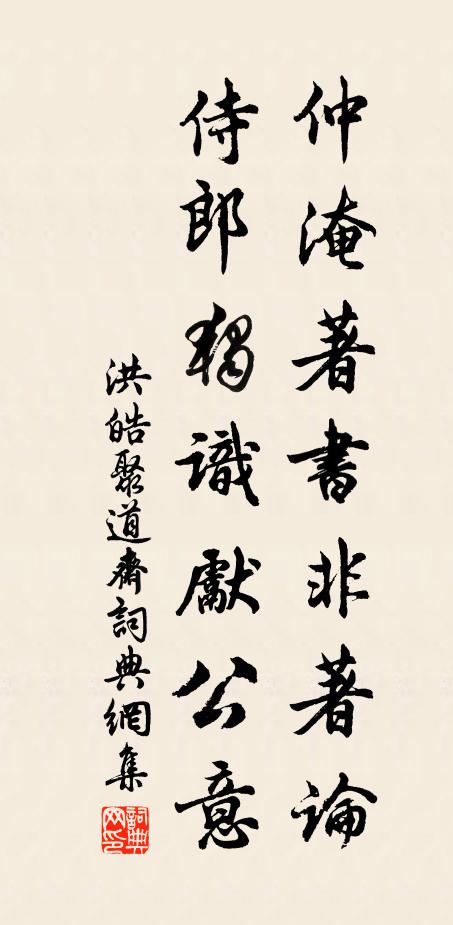 仲淹著書非著論
侍郎獨識獻公意
洪皓聚道齋詞典網集
詞典網印